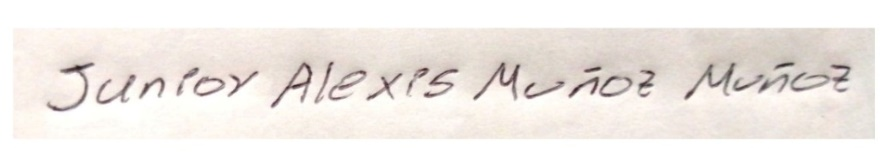 Junior Alexis Muñoz Muñoz